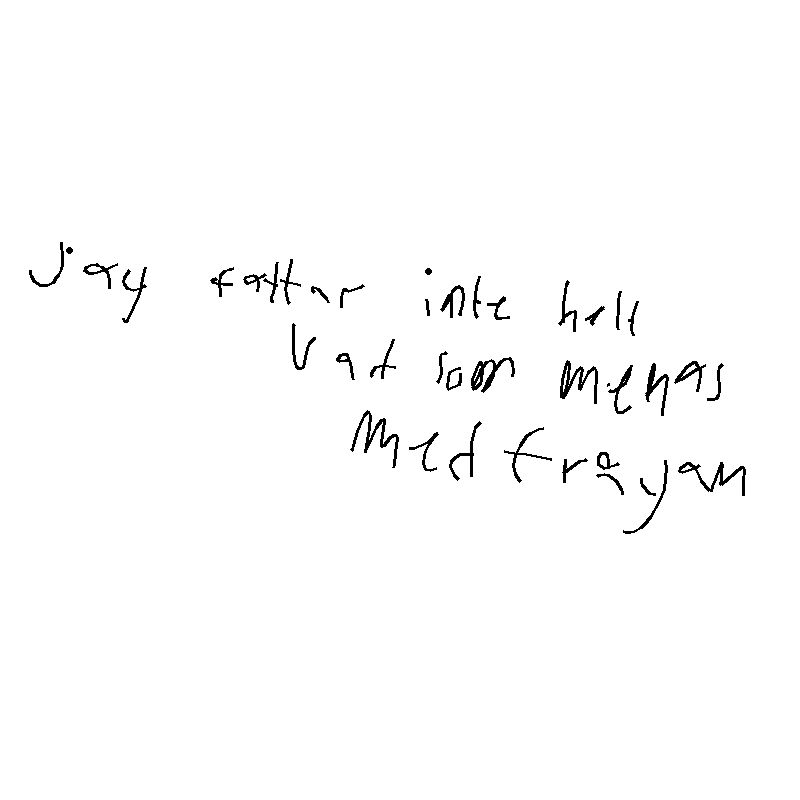 jag fattar inte helt
vad som menas
med frågan